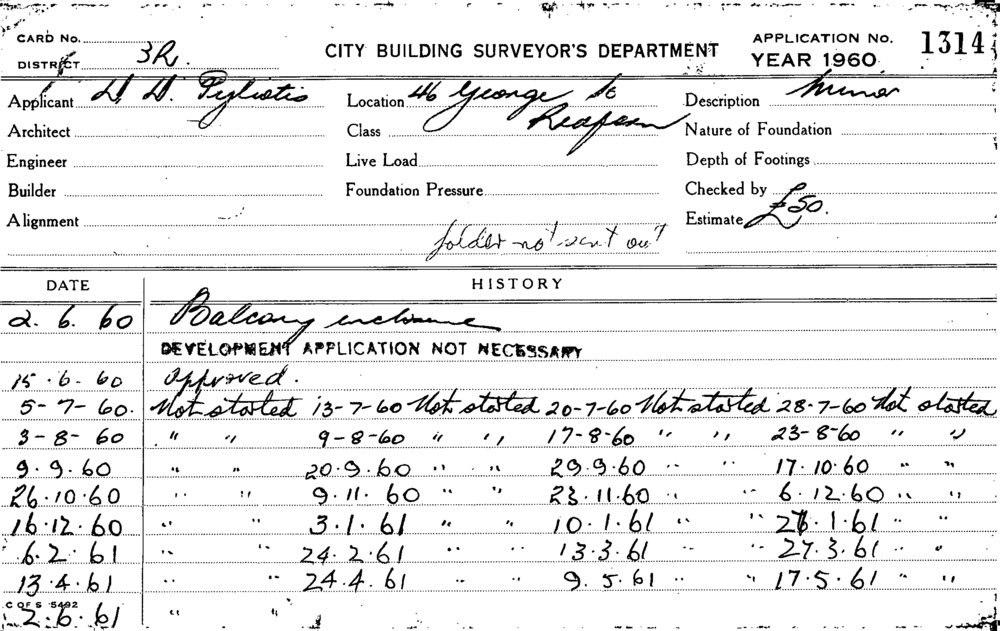 CARD No. CITY BUILDING SURVEYOR'S DEPARTMENT APPLICATION No. 1314
DISTRICT 3R. YEAR 1960
Applicant D. D. Pyliotis Location 46 George St Description Minor
Architect Class Redfern Nature of Foundation
Engineer Live Load Depth of Footings
Builder Foundation Pressure Checked by
Alignment Estimate £50.
folder not sent out
DATE HISTORY
2. 6. 60 Balcony enclosure
DEVELOPMENT APPLICATION NOT NECESSARY
15 . 6 . 60 approved.
5-7-60. Not started 13-7-60 Not started 20-7-60 Not started 28-7-60 Not started
3-8-60 " " 9-8-60 " " 17-8-60 " " 23-8-60 " "
9.9.60 " " 20.9.60 " " 29.9.60 " " 17.10.60 " "
26.10.60 " " 9.11.60 " " 23.11.60 " " 6.12.60 " "
16.12.60 " " 3.1.61 " " 10.1.61 " " 26.1.61 " "
6.2.61 " " 24.2.61 " " 13.3.61 " " 27.3.61 " "
13.4.61 " " 24.4.61 " " 9.5.61 " " 17.5.61 " "
C OF S 5492
2.6.61 " "